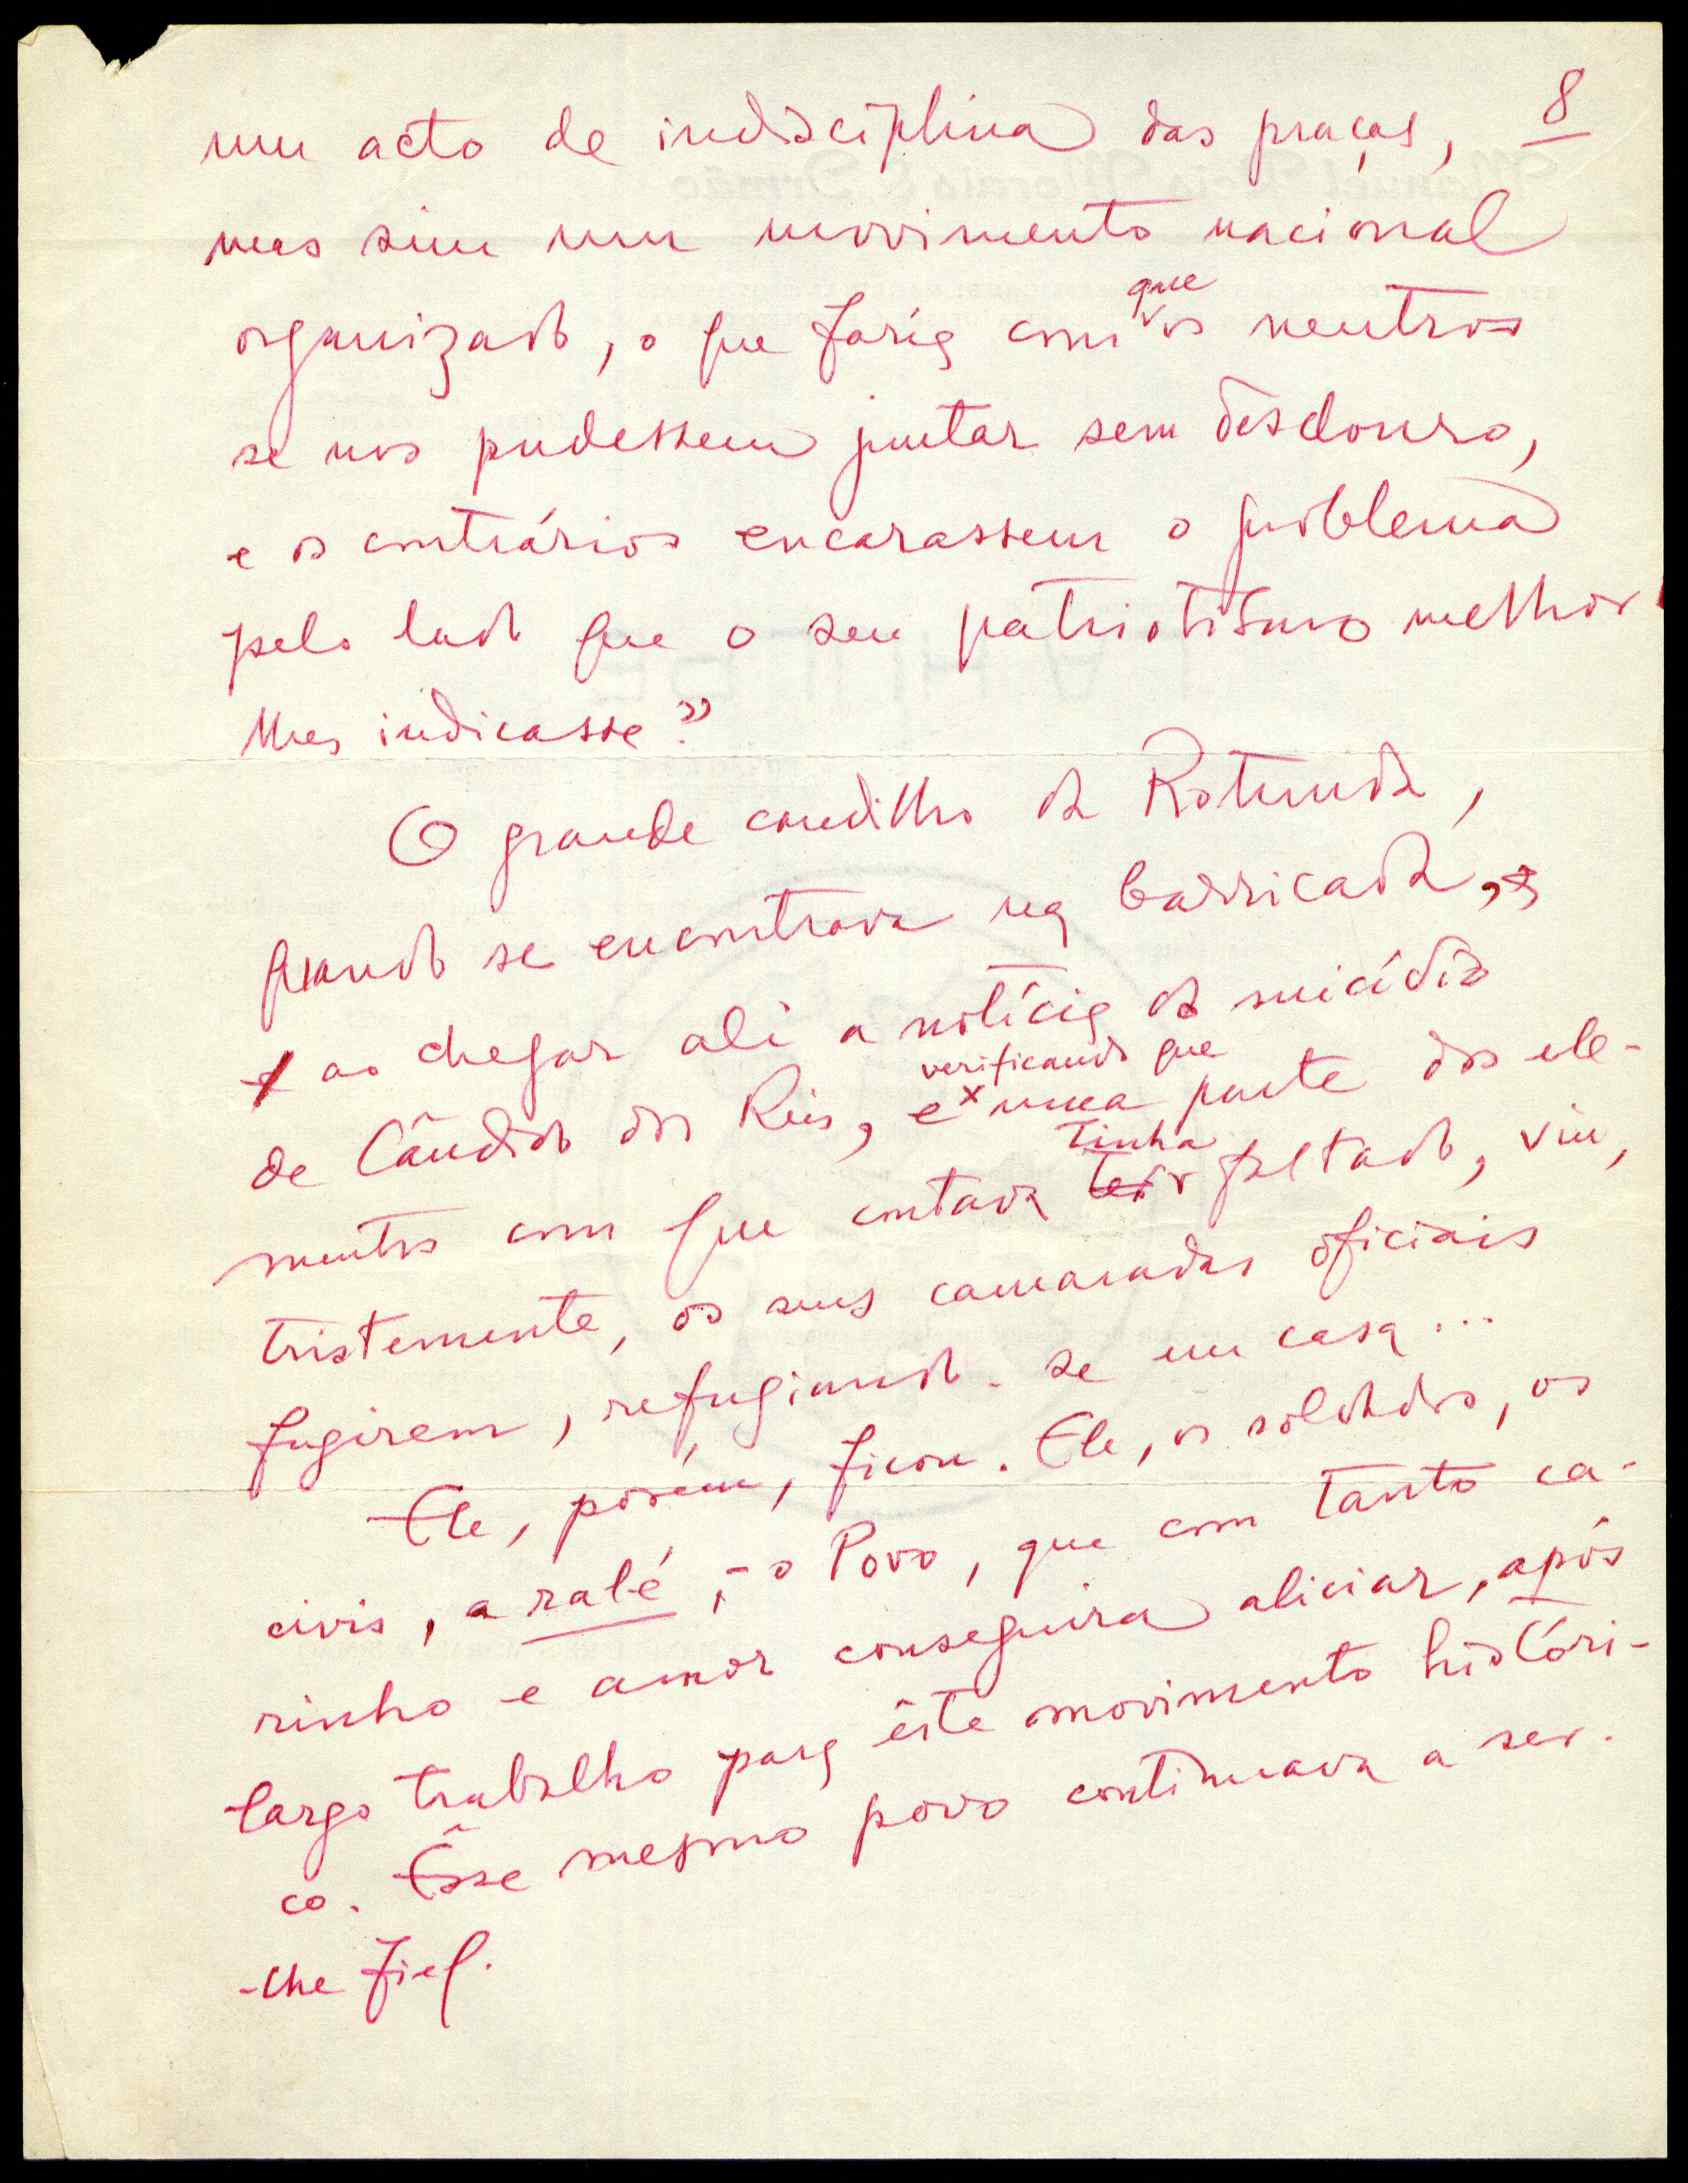 8
um acto de indisciplina das praças,
mas sim um movimento nacional
organizado, o que faria com que os neutros
se nos pudessem juntar sem desdouro,
e os contrários encarassem o problema
pelo lado que o seu patriotismo melhor
lhes indicasse?"
O grande caudilho da Rotunda,
quando se encontrava na barricada,
ao chegar ali a notícia do suicídio
de Cândido dos Reis, e verificando que uma parte dos ele-
mentos com que contava tinha faltado, viu,
tristemente, os seus camaradas oficiais
fugirem, refugiando-se em casa...
Ele, porém, ficou. Ele, os soldados, os
civis, a ralé, - o Povo, que com tanto ca-
rinho e amor conseguira aliciar, após
largo trabalho para êste movimento históri-
co. Êsse mesmo povo continuava a ser-
-lhe fiel.